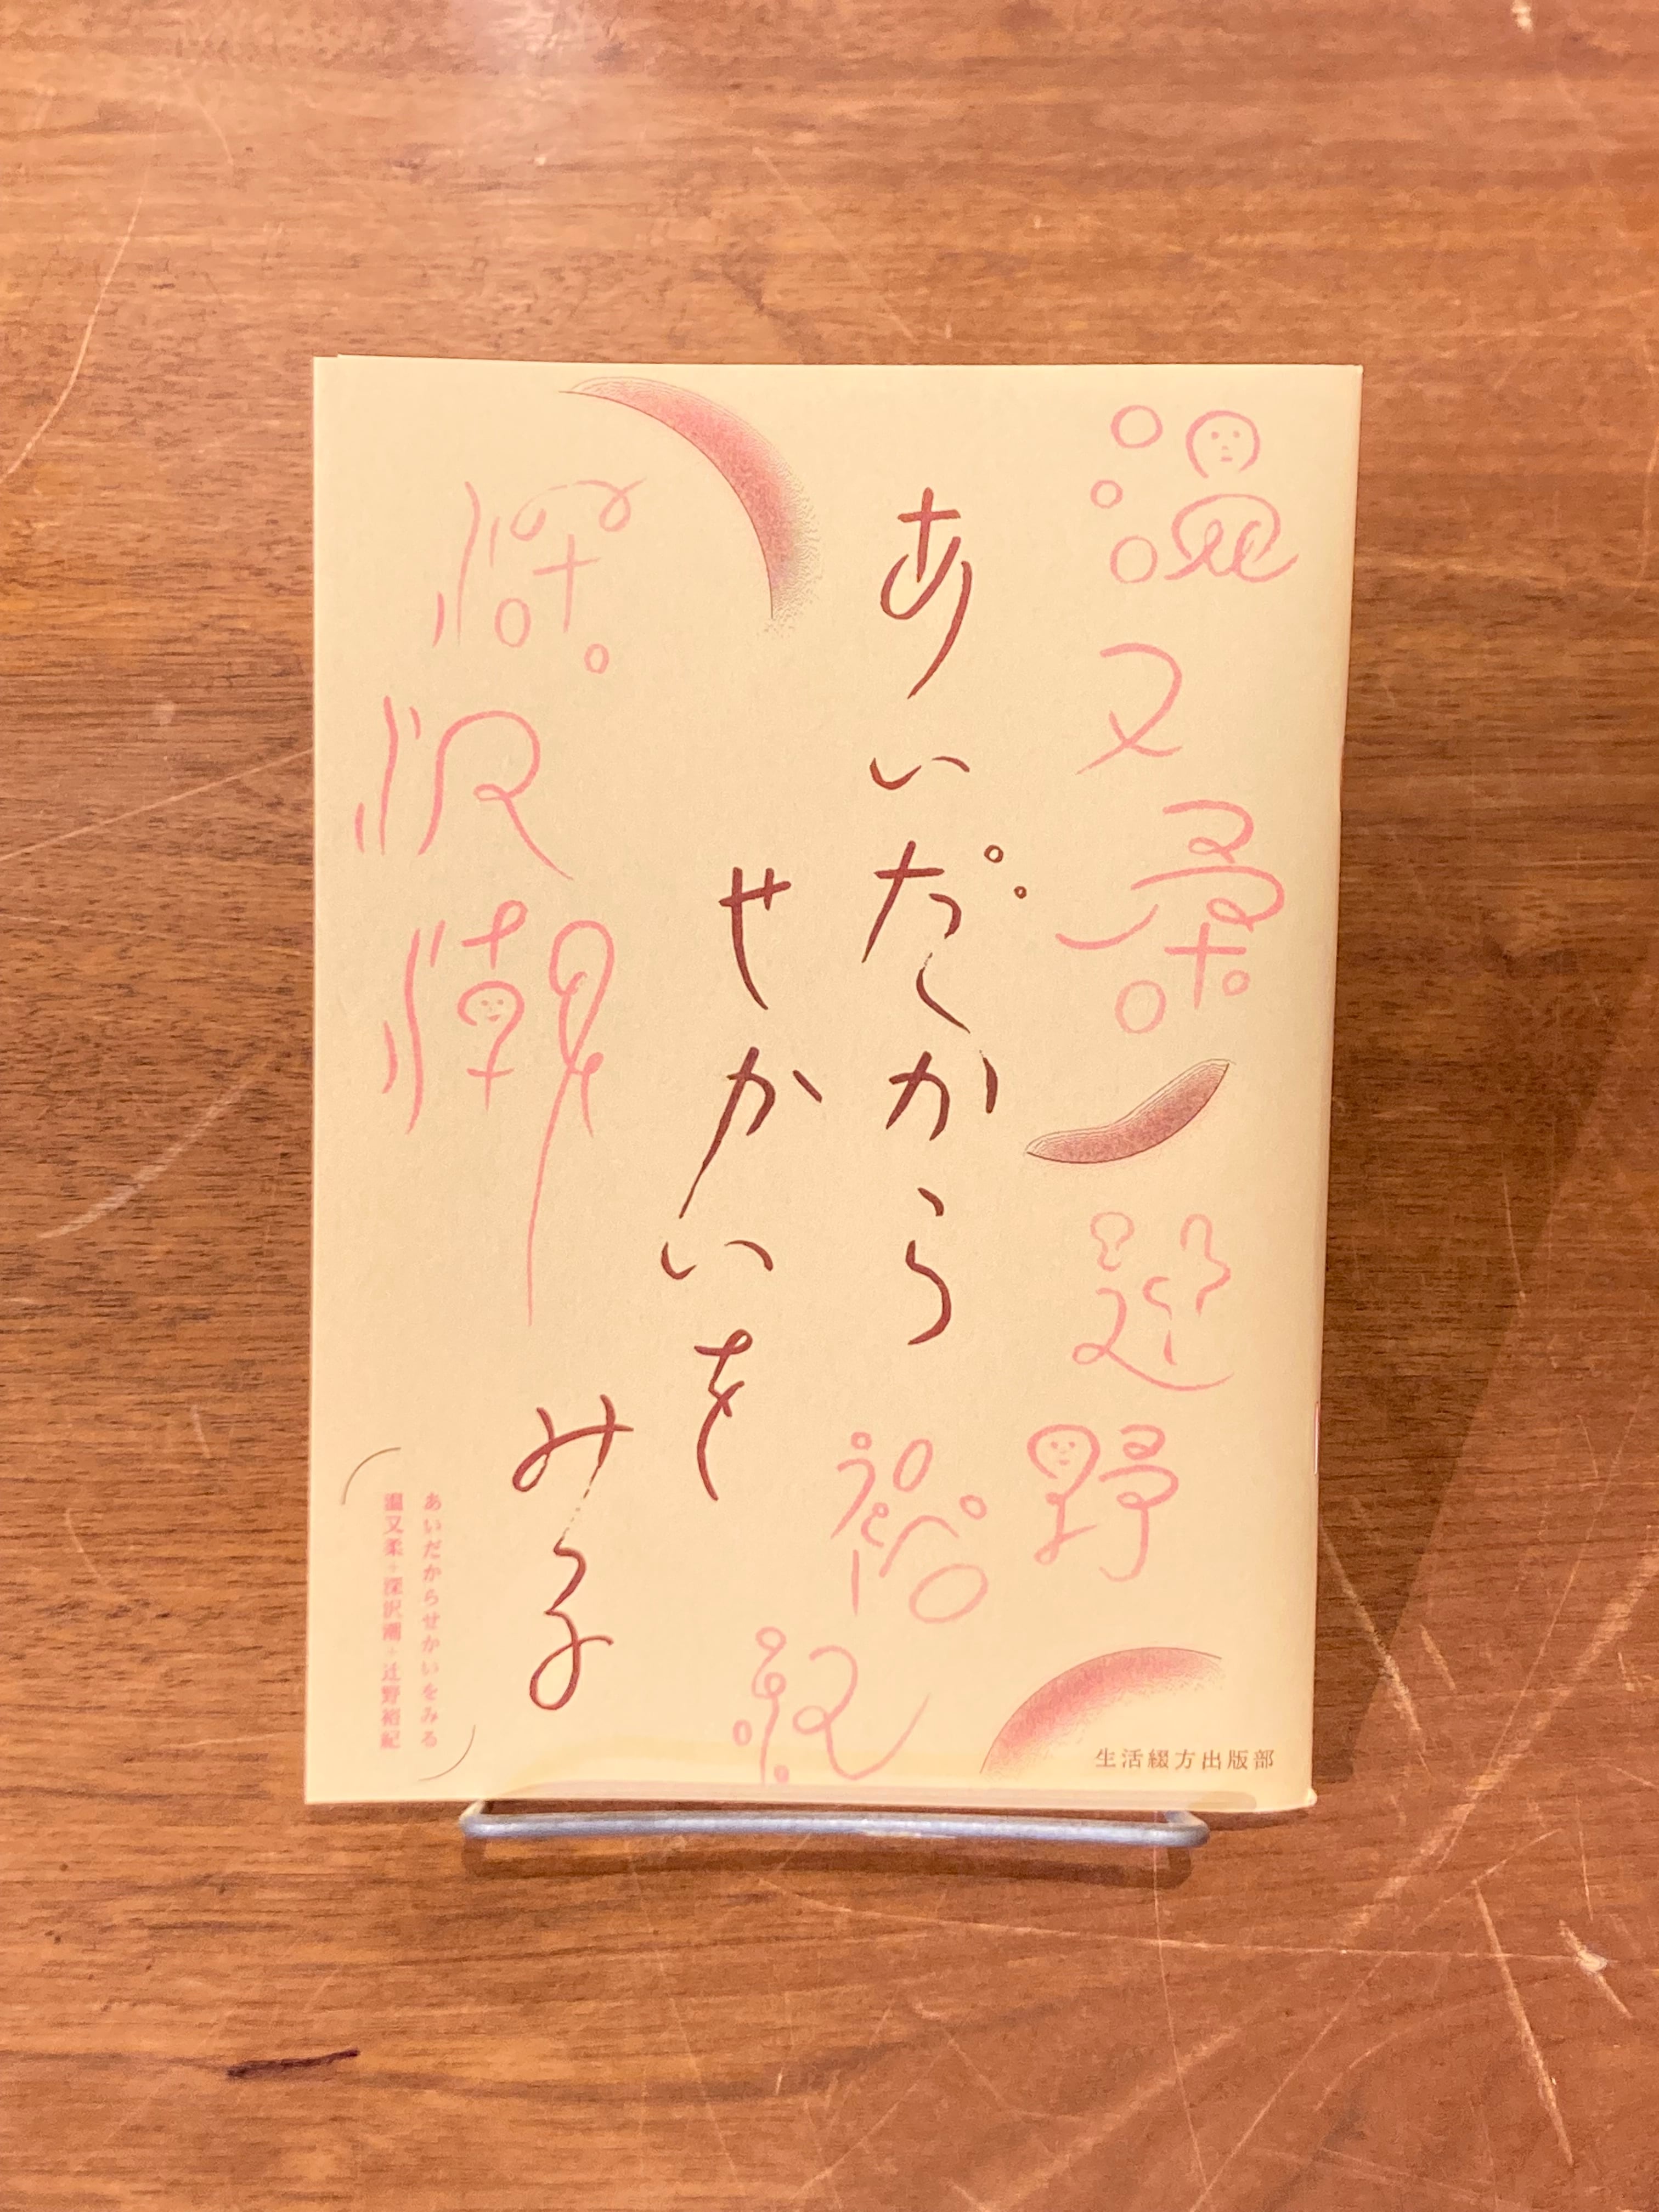 温又柔
あいだから
せかいを
みる
辻野
裕
紀
深沢潮
あいだからせかいをみる
温又柔+深沢潮+辻野裕紀
生活綴方出版部